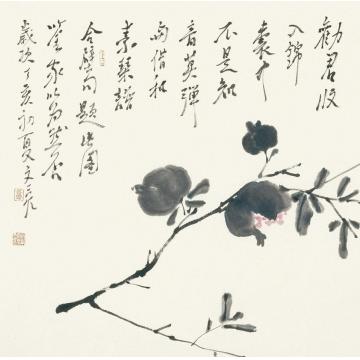 勸君收
入錦
囊中
不是知
音莫彈
向借和
素琴譜
合璧句題此圖
鑒家以為然否
歲次丁亥初夏文